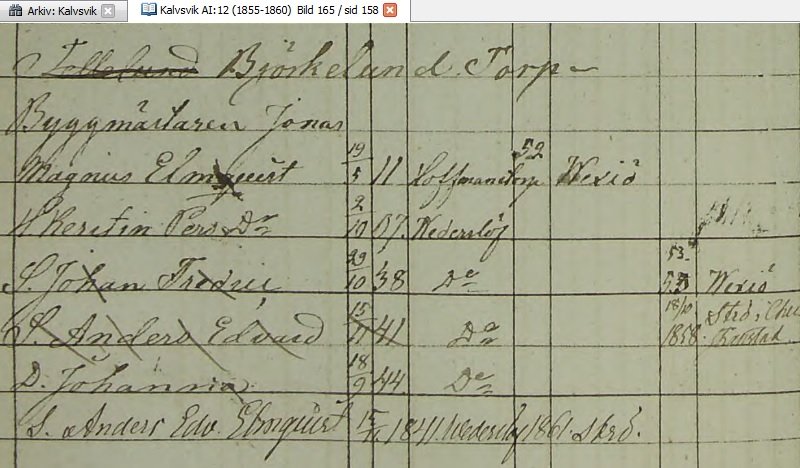 Arkiv: Kalvsvik
Kalvsvik AI:12 (1855-1860) Bild 165 / sid 158
Björkelund. Torp
Byggmästaren Jonas
Magnus Elmquist 19/5 11 Hoffmanstorp 52 Wexiö
H Kerstin Pers Dr 2/10 07. Nederslöf
S. Johan Fredric 29/10 38 Do 53 Wexiö
S. Anders Edvard 15/11 41 Do 18/10 1858
D. Johanna 18/9 44 Do
S. Anders Edv. Elmquist 15/11 1841. 1861.